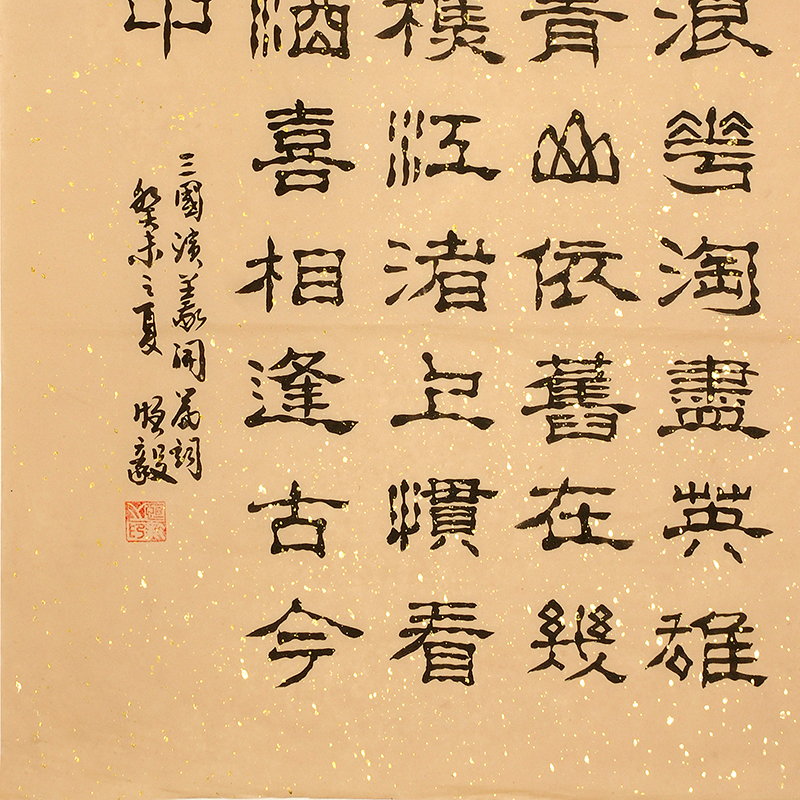 浪花淘盡英雄
青山依舊在幾
樵江渚上慣看
酒喜相逢古今
中
三國演義開篇詞
癸未之夏 毅